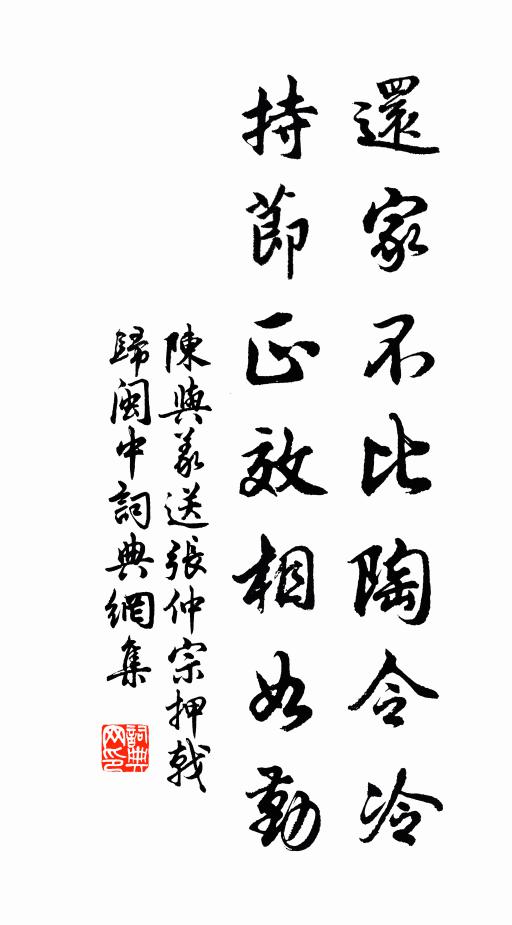 還家不比陶令冷
持節正效相如勤
陳與義送張仲宗押戟
歸閩中詞典網集
詞典網印